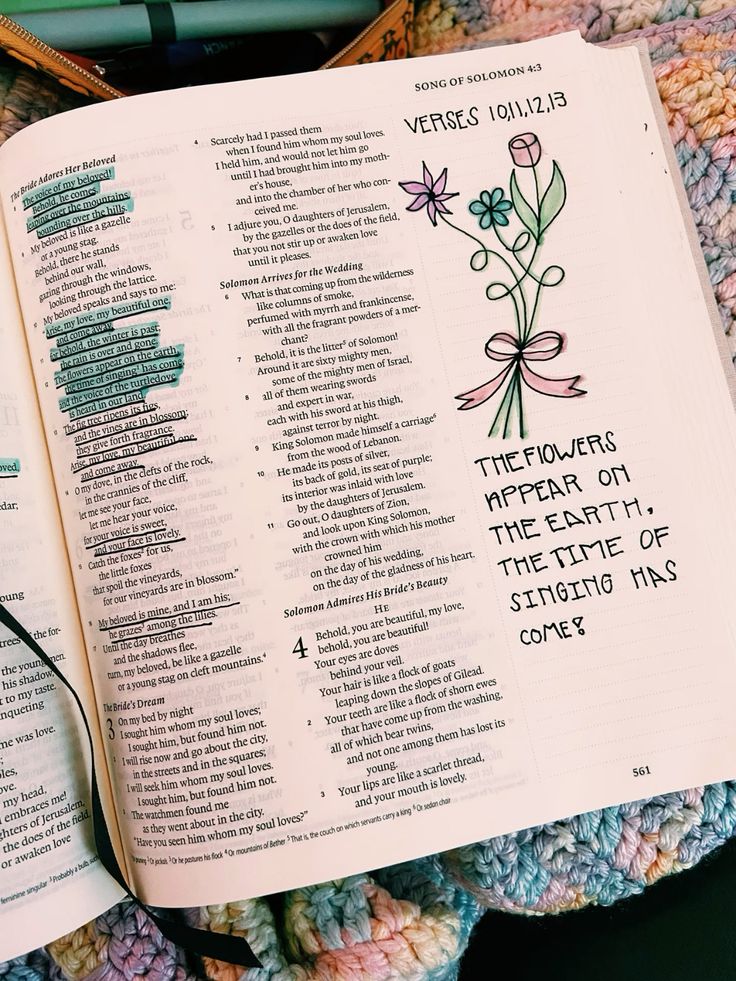 SONG OF SOLOMON 4:3
oved,
edar;
oung
trees of the for-
the young men.
his shadow,
to my taste.
nqueting
me was love.
my head,
embraces me!
ghters of Jerusalem,
the does of the field,
or awaken love
feminine singular 3 Probably a bulb,
The Bride Adores Her Beloved
The voice of my beloved!
Behold, he comes,
leaping over the mountains,
bounding over the hills.
My beloved is like a gazelle
or a young stag.
Behold, there he stands
behind our wall,
gazing through the windows,
looking through the lattice.
My beloved speaks and says to me:
"Arise, my love, my beautiful one,
and come away,
for behold, the winter is past;
the rain is over and gone.
The flowers appear on the earth,
the time of singing has come,
and the voice of the turtledove
is heard in our land.
The fig tree ripens its figs,
and the vines are in blossom;
they give forth fragrance.
Arise, my love, my beautiful one,
and come away.
O my dove, in the clefts of the rock,
in the crannies of the cliff,
let me see your face,
let me hear your voice,
for your voice is sweet,
and your face is lovely.
Catch the foxes for us,
the little foxes
that spoil the vineyards,
for our vineyards are in blossom."
My beloved is mine, and I am his;
he grazes3 among the lilies.
Until the day breathes
and the shadows flee,
turn, my beloved, be like a gazelle
or a young stag on cleft mountains.4
The Bride's Dream
3 On my bed by night
I sought him whom my soul loves;
I sought him, but found him not.
I will rise now and go about the city,
in the streets and in the squares;
I will seek him whom my soul loves.
I sought him, but found him not.
The watchmen found me
as they went about in the city.
"Have you seen him whom my soul loves?"
4 Scarcely had I passed them
when I found him whom my soul loves.
I held him, and would not let him go
until I had brought him into my moth-
er's house,
and into the chamber of her who con-
ceived me.
5 I adjure you, O daughters of Jerusalem,
by the gazelles or the does of the field,
that you not stir up or awaken love
until it pleases.
Solomon Arrives for the Wedding
6 What is that coming up from the wilderness
like columns of smoke,
perfumed with myrrh and frankincense,
with all the fragrant powders of a mer-
chant?
7 Behold, it is the litter5 of Solomon!
Around it are sixty mighty men,
some of the mighty men of Israel,
8 all of them wearing swords
and expert in war,
each with his sword at his thigh,
against terror by night.
9 King Solomon made himself a carriage6
from the wood of Lebanon.
10 He made its posts of silver,
its back of gold, its seat of purple;
its interior was inlaid with love
by the daughters of Jerusalem.
11 Go out, O daughters of Zion,
and look upon King Solomon,
with the crown with which his mother
crowned him
on the day of his wedding,
on the day of the gladness of his heart.
Solomon Admires His Bride's Beauty
HE
4 Behold, you are beautiful, my love,
behold, you are beautiful!
Your eyes are doves
behind your veil.
Your hair is like a flock of goats
leaping down the slopes of Gilead.
2 Your teeth are like a flock of shorn ewes
that have come up from the washing,
all of which bear twins,
and not one among them has lost its
young.
3 Your lips are like a scarlet thread,
and your mouth is lovely.
young 2 Or jackals 3 Or he pastures his flock 4 Or mountains of Bether 5 That is, the couch on which servants carry a king 6 Or sedan chair
VERSES 10,11,12,13
THE FLOWERS
APPEAR ON
THE EARTH,
THE TIME OF
SINGING HAS
COME!
561